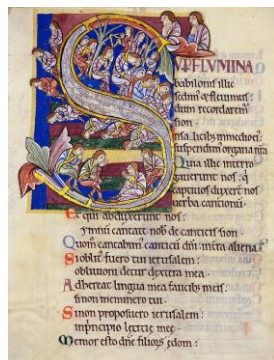 SUPER FLUMINA
babilonis illic
sedim' & fleuimus:
dum recordarem'
sion.
In salicib; in medio ei':
suspendim' organa nra
Quia illic interro
gauerunt nos: q
captiuos duxert nos
uerba cantionu.
Et qui abduxerunt nos:
ymnu cantate nob de canticis sion
Quom cantabim' canticu dni: in tra aliena?
Si oblit' fuero tui ierusalem:
obliuioni detur dextera mea.
Adhereat lingua mea faucib; meis:
si non meminero tui.
Si non proposuero ierusalem:
in principio leticie mee.
Memor esto dne filioru edom: